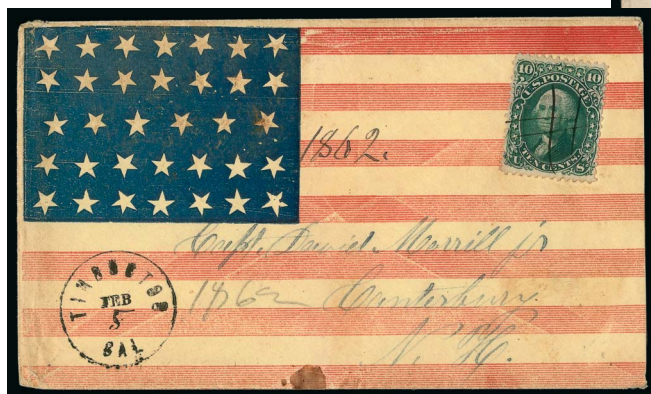 10 10
U.S. POSTAGE
TEN CENTS
U S
1862.
Capt. Daniel Merrill jr
1862 Canterbury
N. H.
TIMBUCTOO
FEB
5
CAL